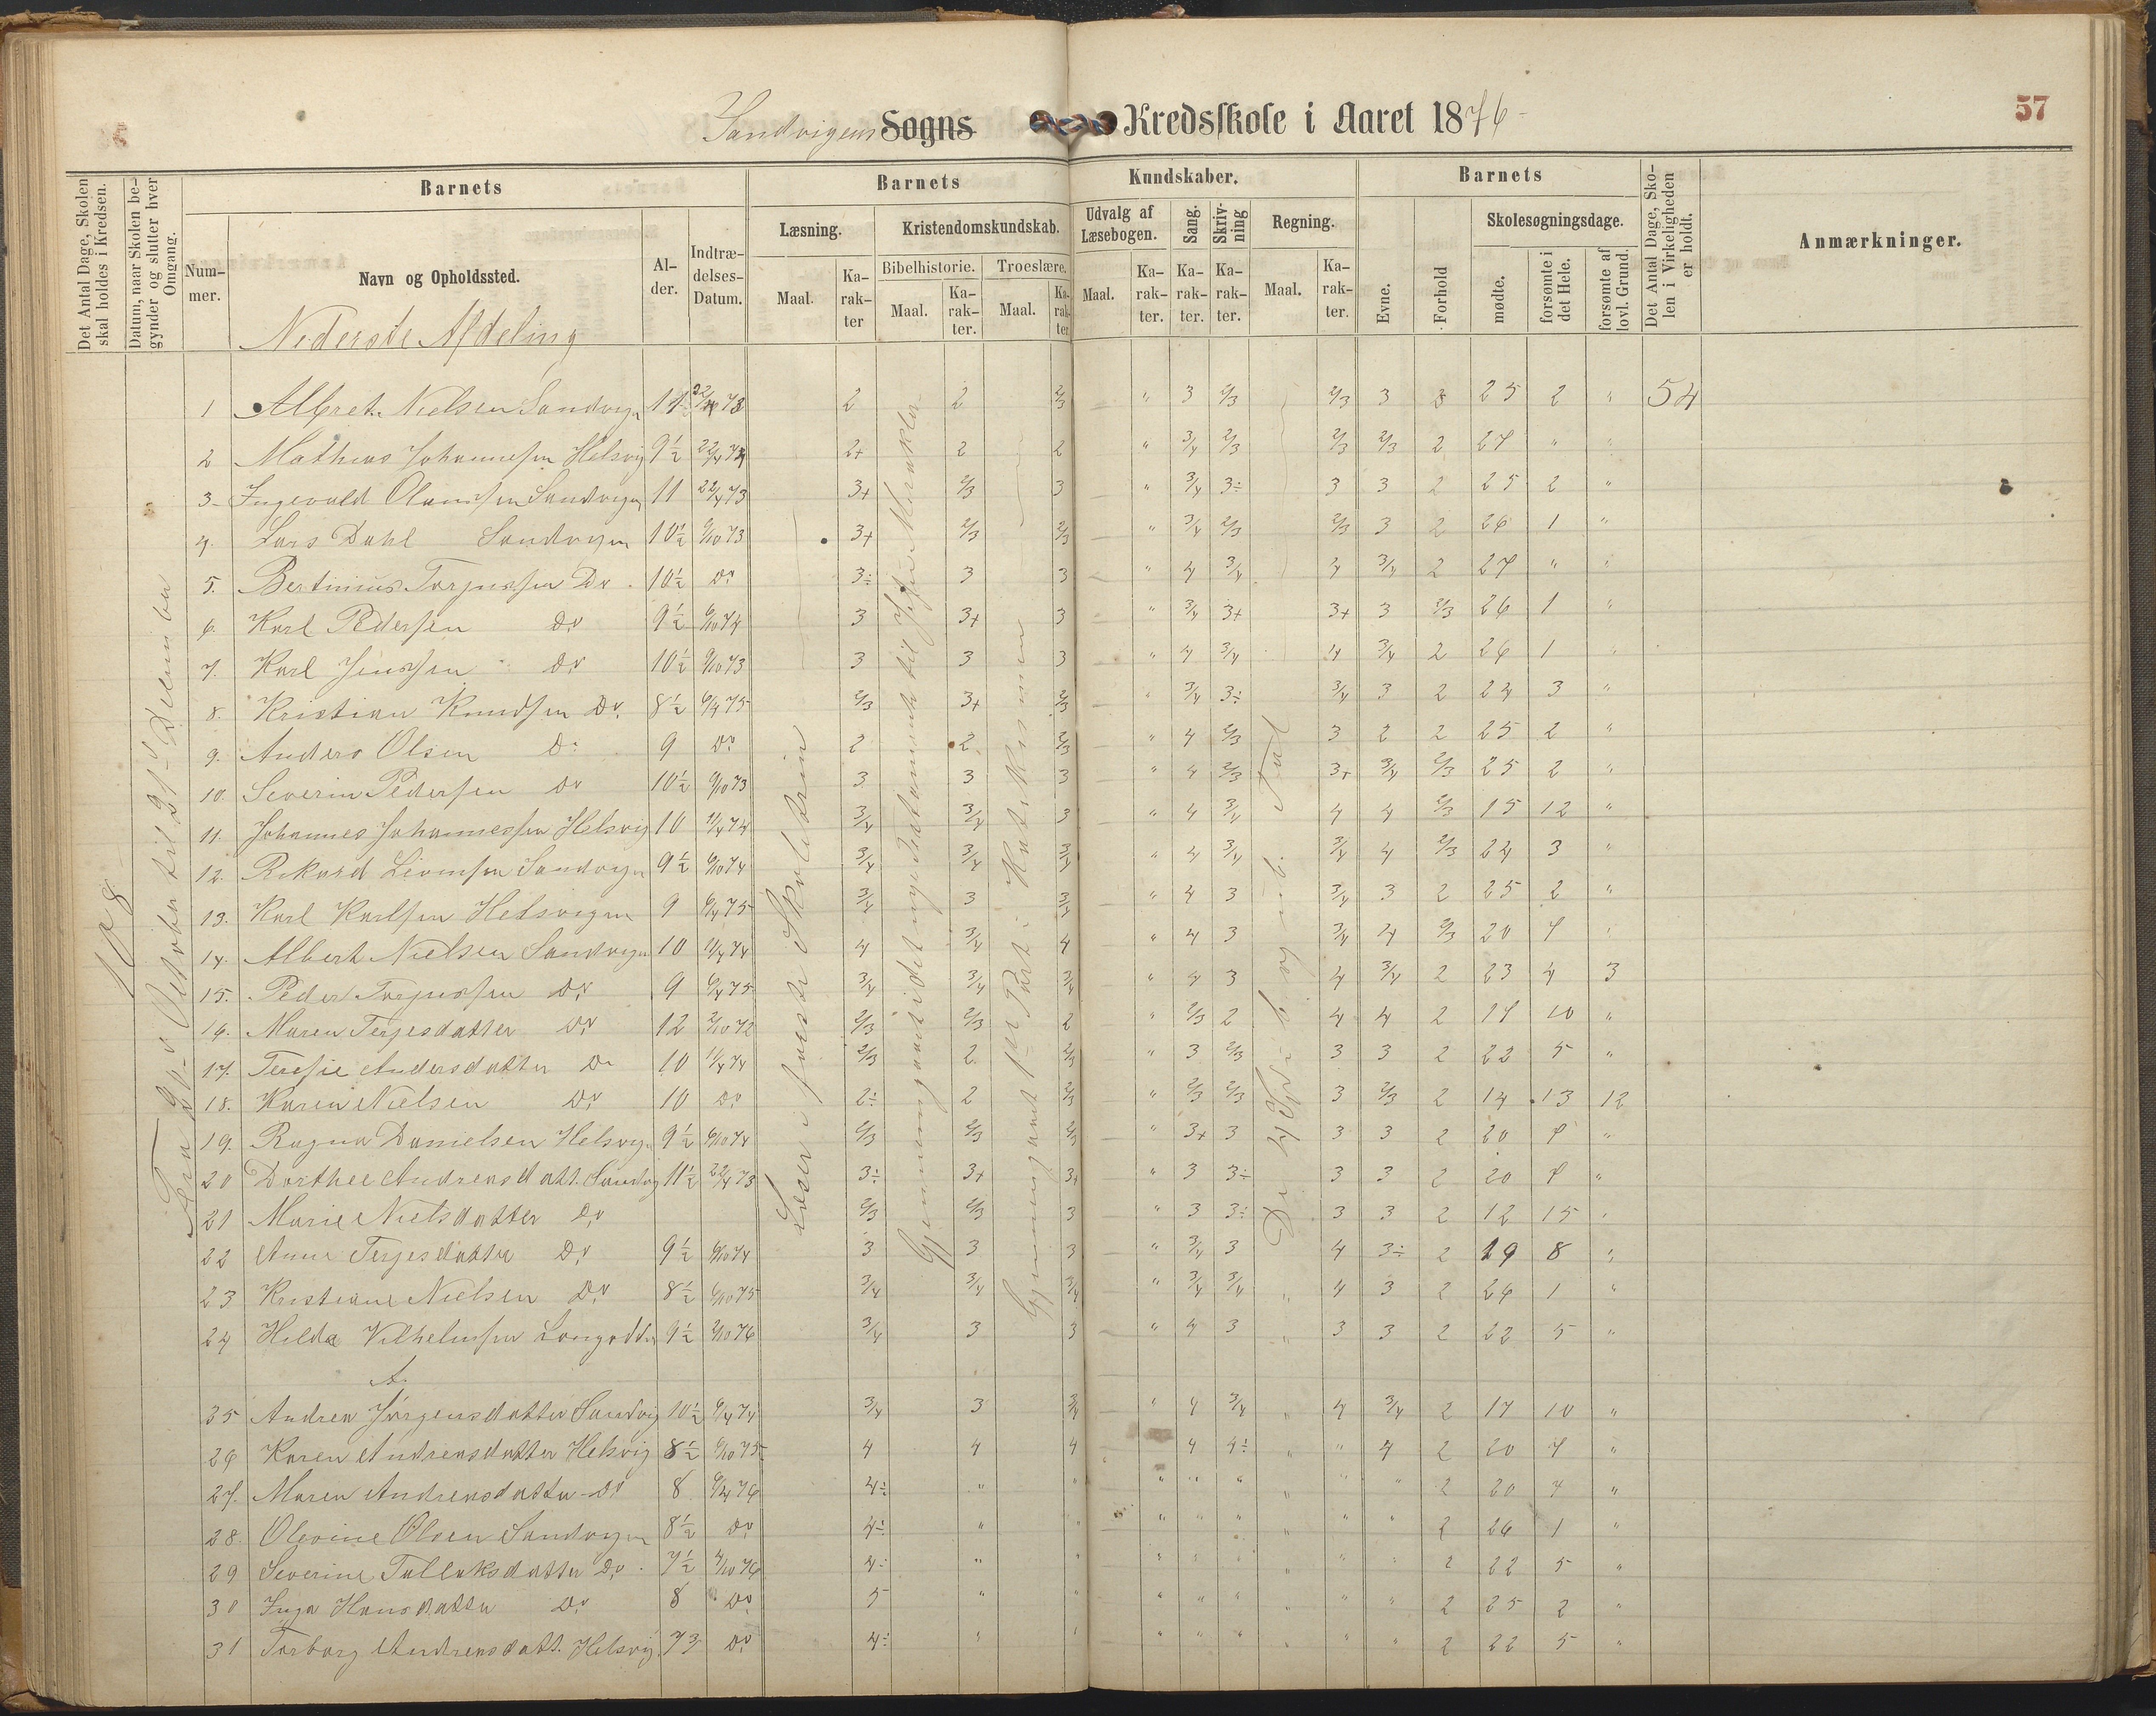 Sandvigens Sogns Kredsskole i Aaret 1876
57
Det Antal Dage, Skolen skal holdes i Kredsen.
Datum, naar Skolen begynder og slutter hver Omgang.
Barnets
Nummer.
Navn og Opholdssted.
Alder.
Indtrædelses-Datum.
Barnets Kundskaber.
Læsning.
Maal.
Karakter
Kristendomskundskab.
Bibelhistorie.
Maal.
Karakter.
Troeslære.
Maal.
Karakter
Udvalg af Læsebogen.
Maal.
Karakter.
Sang.
Karakter.
Skrivning
Karakter.
Regning.
Maal.
Karakter.
Barnets
Evne.
Forhold
Skolesøgningsdage.
mødte.
forsømte i det Hele.
forsømte af lovl. Grund.
Det Antal Dage, Skolen i Virkeligheden er holdt.
Anmærkninger.
Nederste Afdeling
108
Læser i første Skoletrin
1 Albret Nielsen Sandvign 11 22/4 73 2 2 2/3 " 3 2/3 2/3 3 3 25 2 " 54
2 Mathias Johannesen Helsvig 9½ 2+ 2 2 " 3/4 2/3 2/3 2/3 2 27 " "
3 Ingevald Olaussen Sandvign 11 22/4 73 3+ 2/3 3 " 3/4 3÷ 3 3 2 25 2 "
4. Lars Dahl Sandvigen 10½ 9/10 73 3+ 2/3 2/3 " 3/4 2/3 2/3 3 2 26 1 "
5. Bertinius Torjussen Do 10½ Do 3÷ 3 3 " 4 3/4 4 3/4 2 27 " "
6. Karl Pedersen Do 9½ 6/10 74 3 3+ 3 " 3/4 3+ 3+ 3 2/3 26 1 "
7. Karl Jenssen Do 10½ 9/10 73 3 3 3 " 4 3/4 4 3/4 2 26 1 "
8. Kristian Knudsen Do 8½ 6/4 75 2/3 3+ 2/3 " 3/4 3÷ 3/4 3 2 24 3 "
9. Anders Olsen Do 9 Do 2 2 2/3 " 4 2/3 3 2 2 25 2 "
10. Severin Pedersen Do 10½ 9/10 73 3 3 3 " 4 2/3 3+ 3/4 2/3 25 2 "
11. Johannes Johannessen Helsvig 10 11/4 74 3/4 3/4 3 " 4 3/4 4 4 2/3 15 12 "
12. Rikard Sandvign 9½ 6/10 74 3/4 3/4 3/4 " 4 3/4 3/4 4 2/3 24 3 "
13. Karl Karlsen Helsvigen 9 6/4 75 3/4 3 3/4 " 4 3 3/4 3 2 25 2 "
14. Albert Nielsen Sandvign 10 11/4 74 4 3/4 4 " 4 3 3/4 4 2/3 20 7 "
15. Peder Torjussen Do 9 6/4 75 3/4 3/4 3/4 " 4 3 4 3/4 2 23 4 3
16. Maren Terjesdatter Do 12 2/10 72 2/3 2/3 2 " 2/3 2 4 4 2 17 10 "
17. Teresie Andersdatter Do 10 11/4 74 2/3 2 2/3 " 3 2/3 3 3 2 22 5 "
18. Karen Nielsen Do 10 Do 2÷ 2 2/3 " 2/3 2/3 3 2/3 2 14 13 12
19. Ragna Danielsen Helsvign 9½ 6/10 74 2/3 2/3 2/3 " 3+ 3 3 3 2 20 7 "
20 Dorthee Andreasdatt. Sandvig 11½ 22/4 73 3÷ 3+ 3+ " 3 3÷ 3 3 2 20 7 "
21 Marie Nielsdatter Do 2/3 2/3 3 " 3 3÷ 3 3 2 12 15 "
22 Anne Terjesdatter Do 9½ 6/10 74 3 3 3 " 3/4 3 4 3÷ 2 19 8 "
23 Kristiane Nielsen Do 8½ 6/10 75 3/4 3/4 3/4 " 3/4 3/4 4 3 2 26 1 "
24 Hilda Vilhelmsen 9½ 2/10 76 3/4 3 3 " 4 3 " 3 3 2 22 5 "
A.
35 Andrea Jørgensdatter Sandvig 10½ 6/4 74 3/4 3 3/4 " 4 3/4 " 4 3/4 2 17 10 "
26 Karen Andreasdatter Helsvig 8½ 6/10 75 4 4 4 4 4÷ " " 4 2 20 7 "
27. Maren Andreasdatter Do 8 6/4 76 4÷ " " " " " " " " 2 20 7 "
28. Olevine Olsen Sandvigen 8½ Do 4÷ " " " " " " " " 2 26 1 "
29 Severine Tallaksdatter Do 7½ 2/10 76 4÷ " " " " " " " " 2 22 5 "
30 Inga Hansdatter Do 8 Do 5 " " " " " " " " 2 25 2 "
31 Torborg Andreasdatt. Helsvig Do 4÷ " " " " " " " " 2 22 5 "